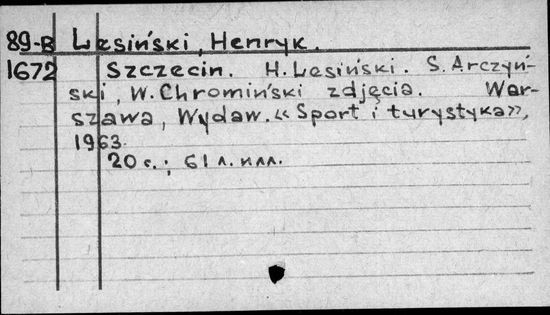 89-B Lesiński, Henryk.
1672 Szczecin. H. Lesiński. S. Arczyń-
ski, W. Chromiński zdjęcia. War-
szawa, Wydaw. «Sport i turystyka»,
1963.
20 с.; 61 л. илл.